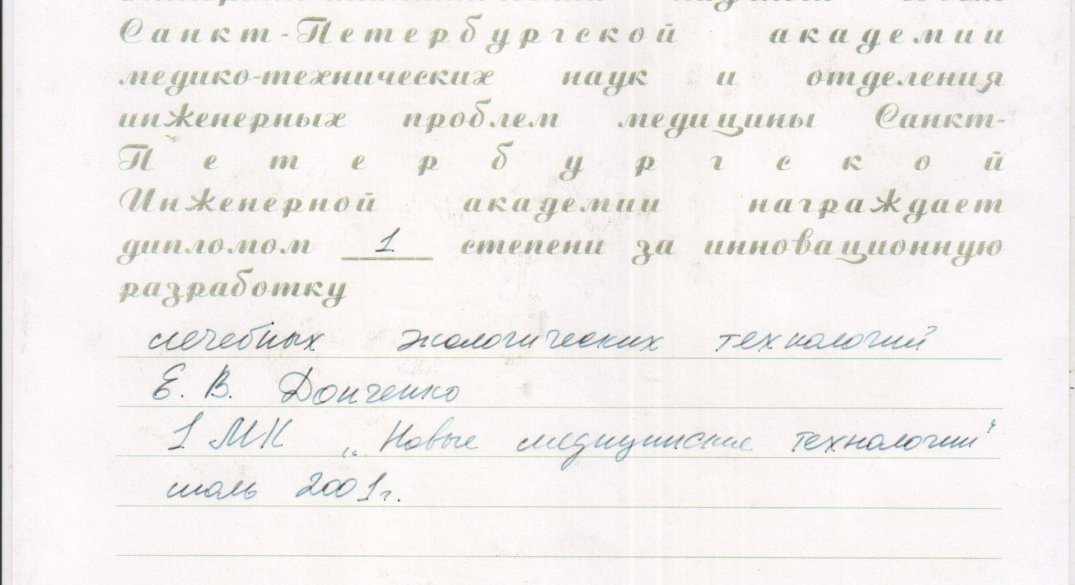 Санкт-Петербургской академии
медико-технических наук и отделения
инженерных проблем медицины Санкт-
Петербургской
Инженерной академии награждает
дипломом 1 степени за инновационную
разработку
лечебных экологических технологий
Е. В. Донченко
1 МК „Новые медицинские технологии"
июль 2001г.